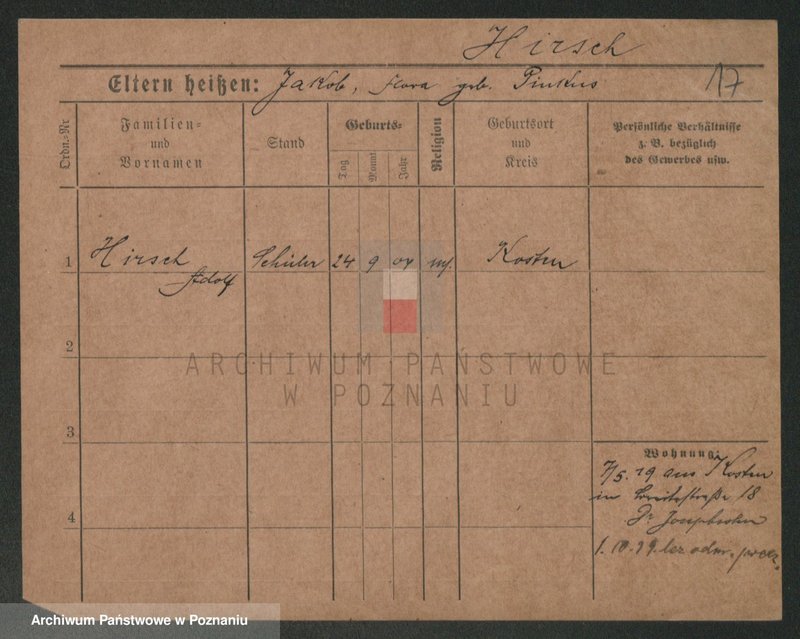 Hirsch
Eltern heißen: Jakob, Flora geb. Pinkus 17
Ordn.=Nr
Familien=
und
Vornamen
Stand
Geburts=
Tag
Monat
Jahr
Religion
Geburtsort
und
Kreis
Persönliche Verhältnisse
z. B. bezüglich
des Gewerbes usw.
1 Hirsch Schüler 24 9 04 Kosten
Adolf
2
3
4
ARCHIWUM PAŃSTWOWE
W POZNANIU
Wohnung:
7/5. 19 aus Kosten
in Breitestraße 18
Josephsohn
1. 10.
Archiwum Państwowe w Poznaniu